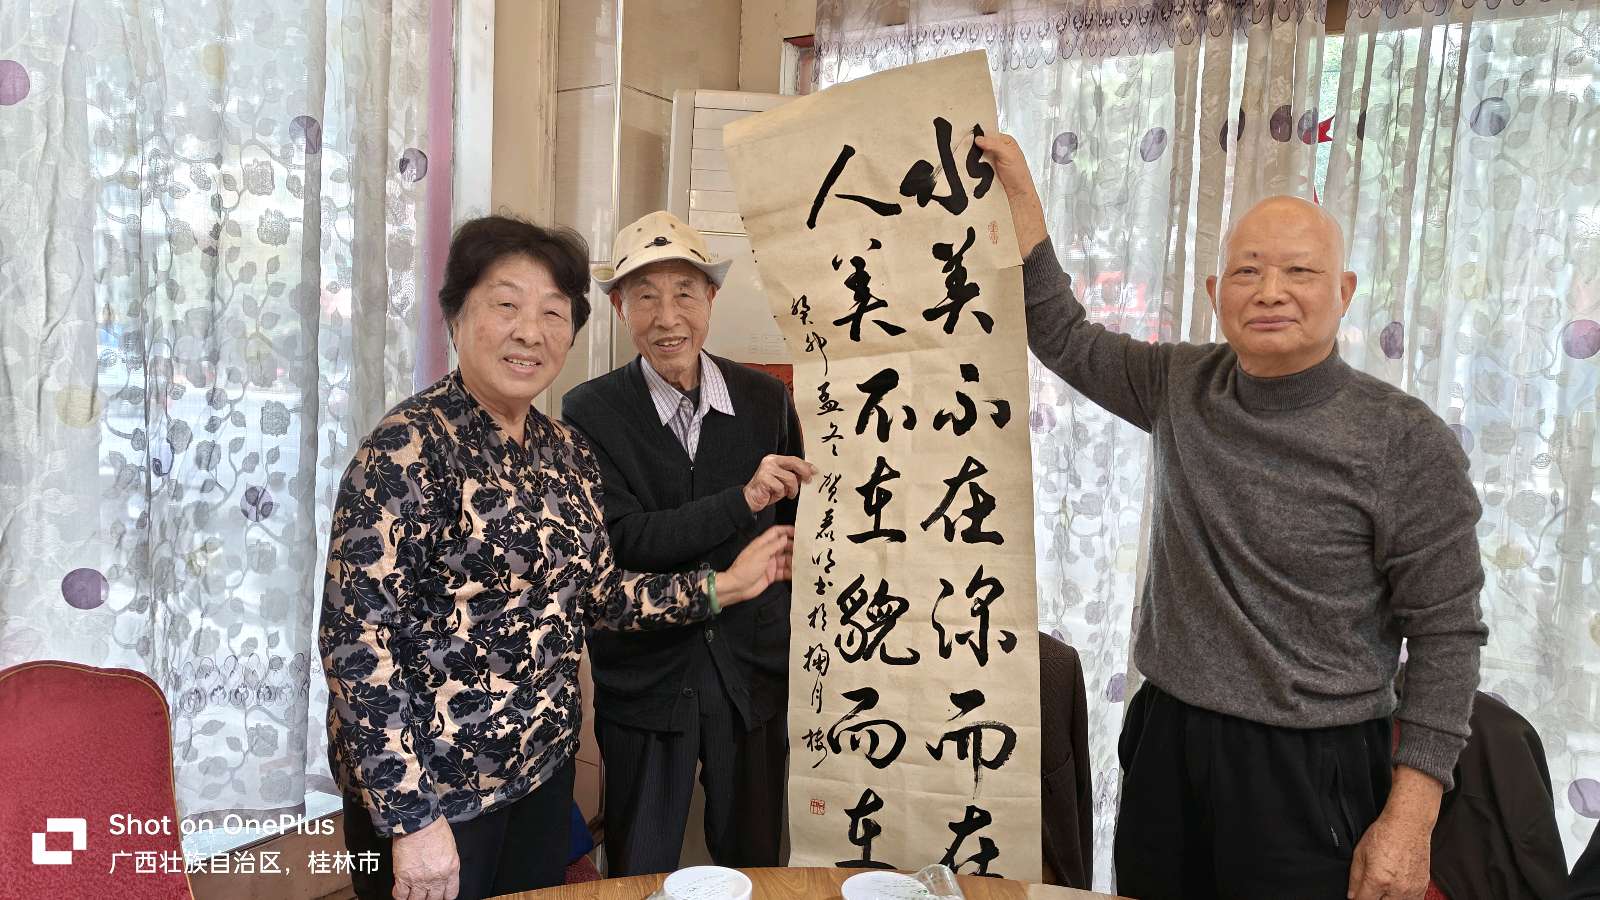 水美不在深而在
人美不在貌而在
癸卯孟冬 贺嘉明书于楠月楼
Shot on OnePlus
广西壮族自治区，桂林市